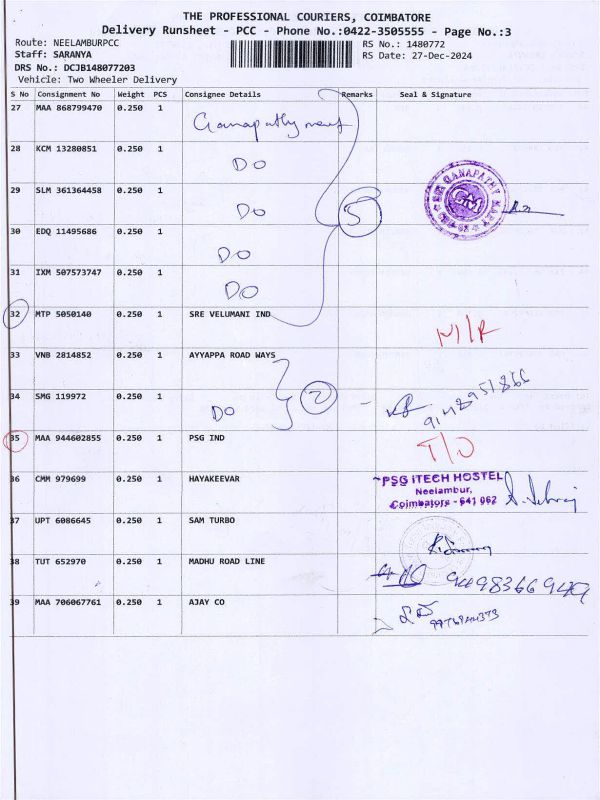 THE PROFESSIONAL COURIERS, COIMBATORE
Delivery Runsheet - PCC - Phone No.:0422-3505555 - Page No.:3
Route: NEELAMBURPCC RS No.: 1480772
Staff: SARANYA RS Date: 27-Dec-2024
DRS No.: DCJB148077203
Vehicle: Two Wheeler Delivery
S No Consignment No Weight PCS Consignee Details Remarks Seal & Signature
27 MAA 868799470 0.250 1 Ganapathy
28 KCM 13280851 0.250 1 DO
29 SLM 361364458 0.250 1 DO 5 SRI GANAPATHY MART GM
30 EDQ 11495686 0.250 1 DO
31 IXM 507573747 0.250 1 DO
32 MTP 5050140 0.250 1 SRE VELUMANI IND N/R
33 VNB 2814852 0.250 1 AYYAPPA ROAD WAYS
34 SMG 119972 0.250 1 DO 2
35 MAA 944602855 0.250 1 PSG IND T/O
36 CMM 979699 0.250 1 HAYAKEEVAR PSG iTECH HOSTEL
Neelambur,
Coimbatore - 641 062
37 UPT 6086645 0.250 1 SAM TURBO
38 TUT 652970 0.250 1 MADHU ROAD LINE
39 MAA 706067761 0.250 1 AJAY CO